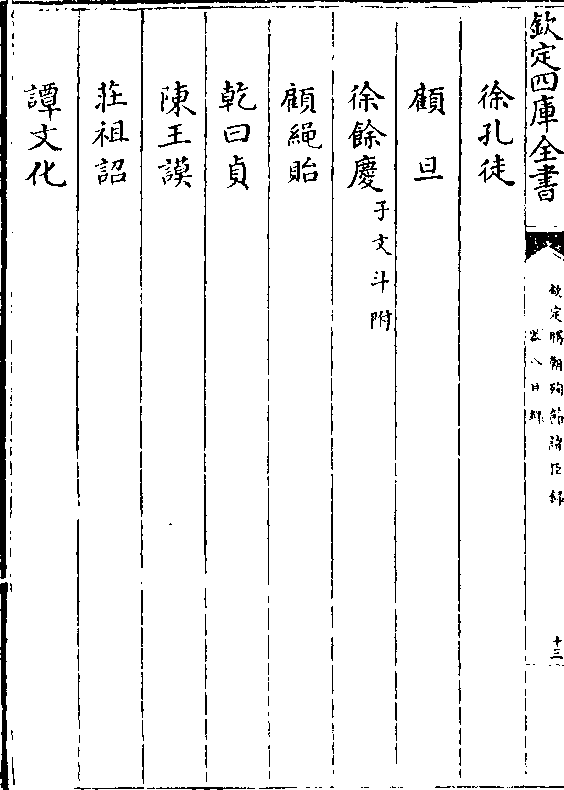 欽定四庫全書
欽定勝朝殉節諸臣録
卷八目録
十三
徐孔徒
顧旦
徐餘慶子文斗附
顧繩貽
乾曰貞
陳王謨
莊祖詔
譚文化